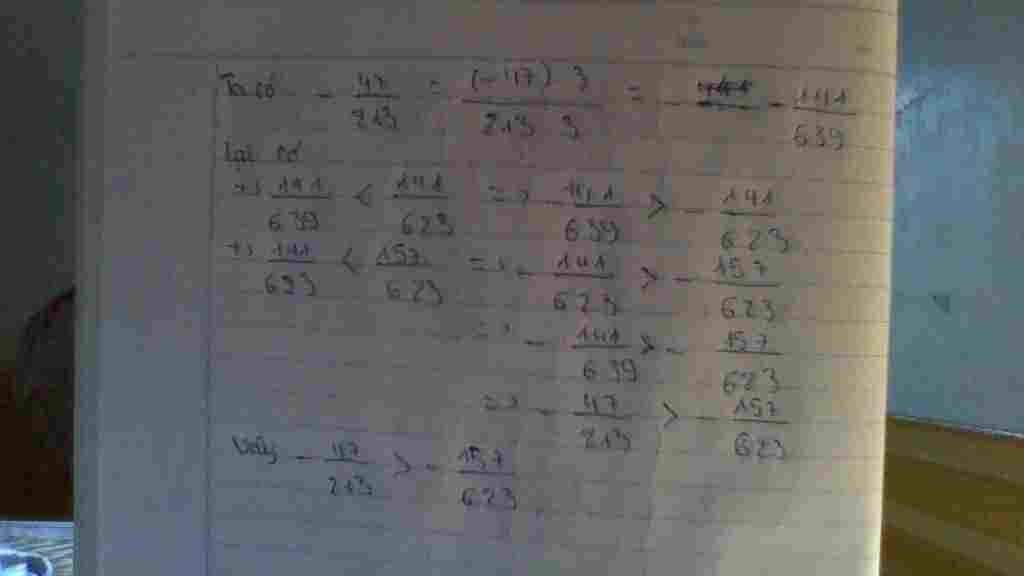 Ta có - 47/213 = (-47) 3 / 213 3 = - 141/639
Lại có
+) 141/639 < 141/623 => - 141/639 > - 141/623
+) 141/623 < 157/623 => - 141/623 > - 157/623
=> - 141/639 > - 157/623
=> - 47/213 > - 157/623
Vậy - 47/213 > - 157/623